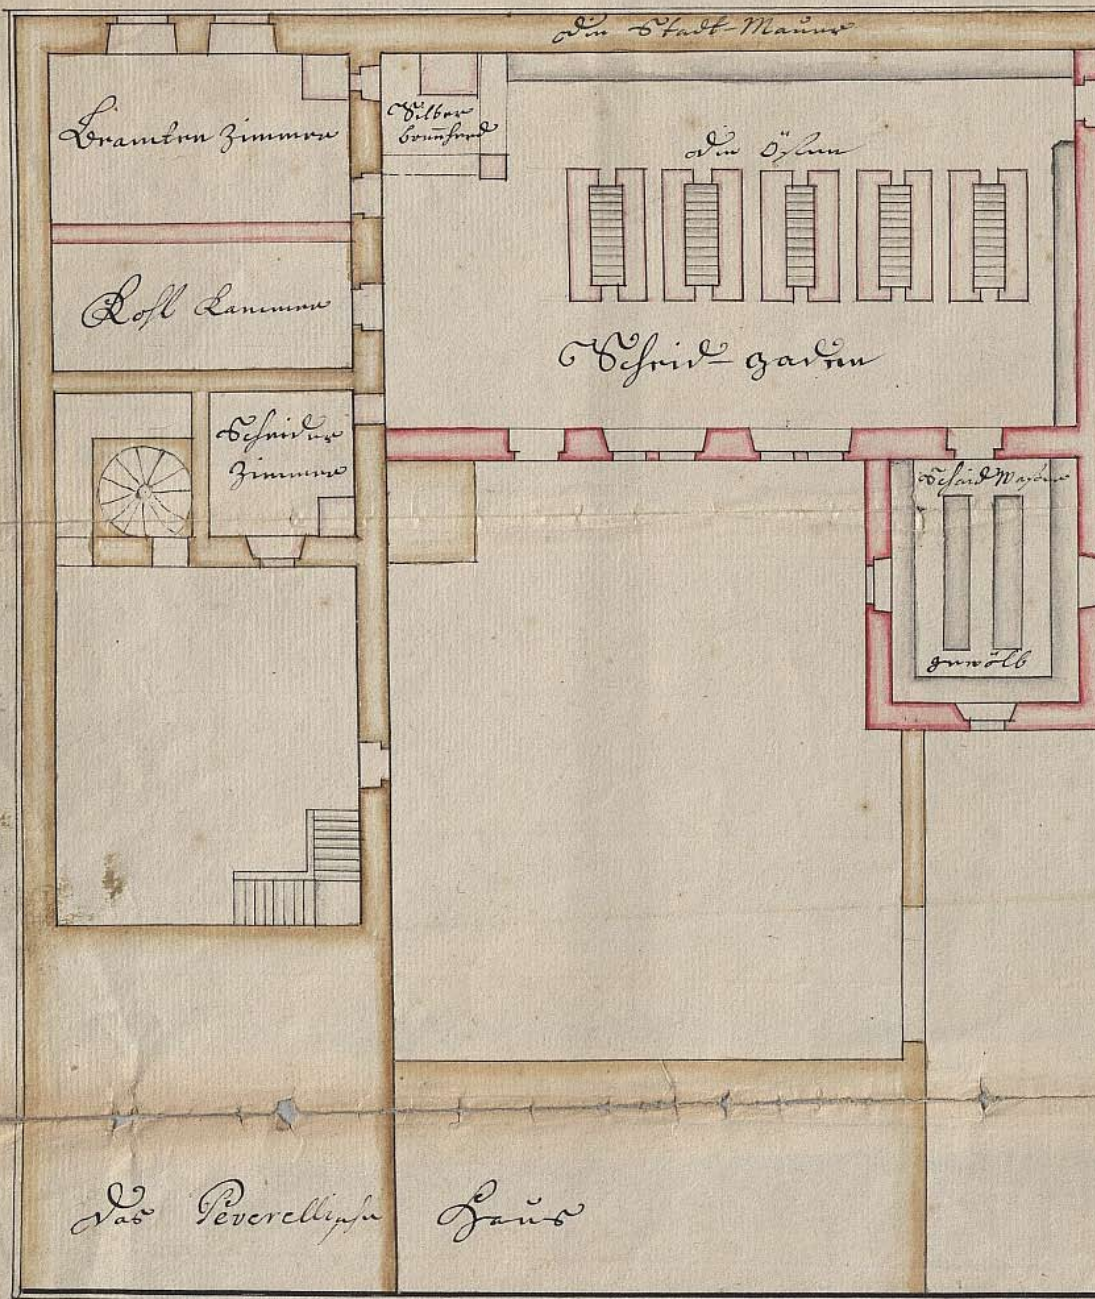 die Stadt-Mauer
Beamten Zimmer
Silber
brennherd
die Öfen
Kohl Kammer
Scheid-gaden
Scheider
Zimmer
Scheid Wasser
gewölb
das Peverellische Haus